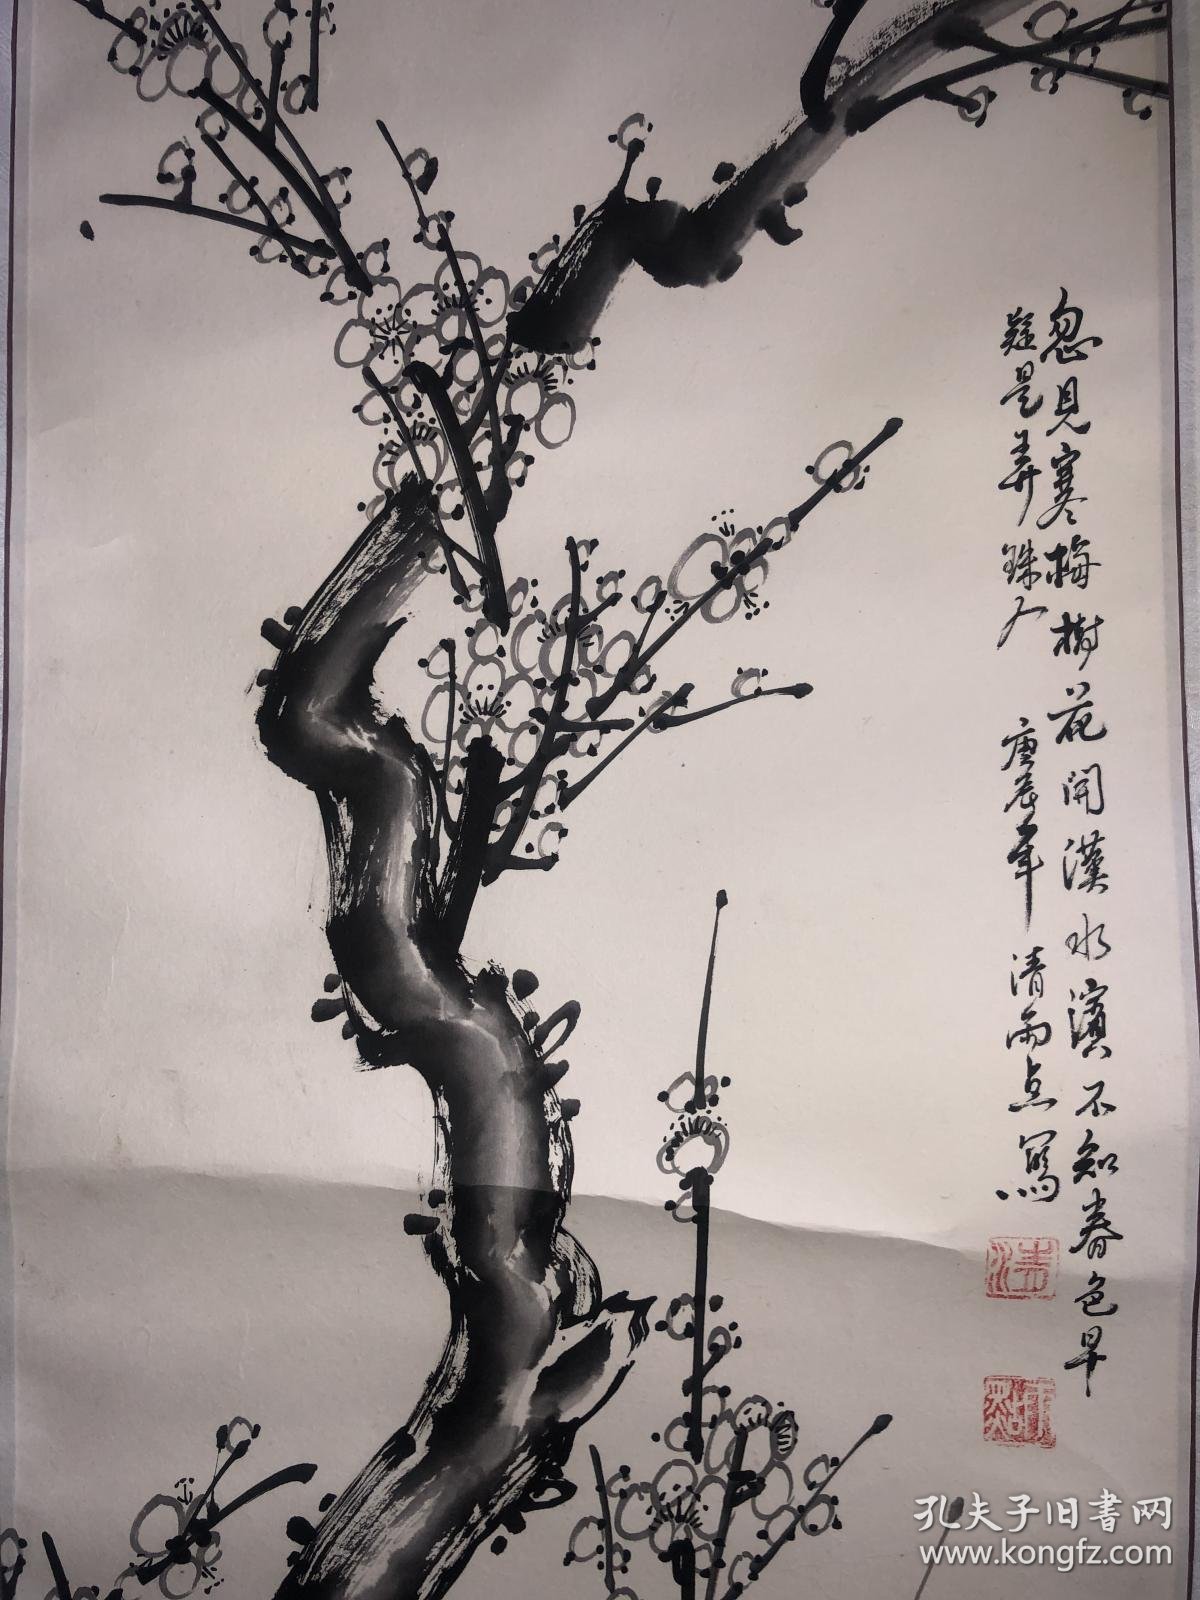 忽見寒梅樹花開漢水濱不知春色早
疑是弄珠人 庚辰年 清雨点寫
清
雨點
孔夫子旧书网
www.kongfz.com